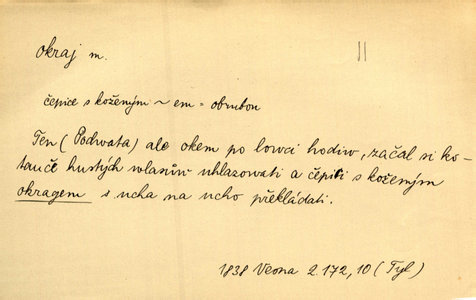 okraj m.
||
čepice s koženým ~ em = obrubou
Ten (Podwata) ale okem po lowci hodiw, začal si ko-
tauče hustých wlasůw uhlazowati a čepici s koženým
okragem s ucha na ucho překládati.
1838 Vesna 2.172,10 (Tyl)